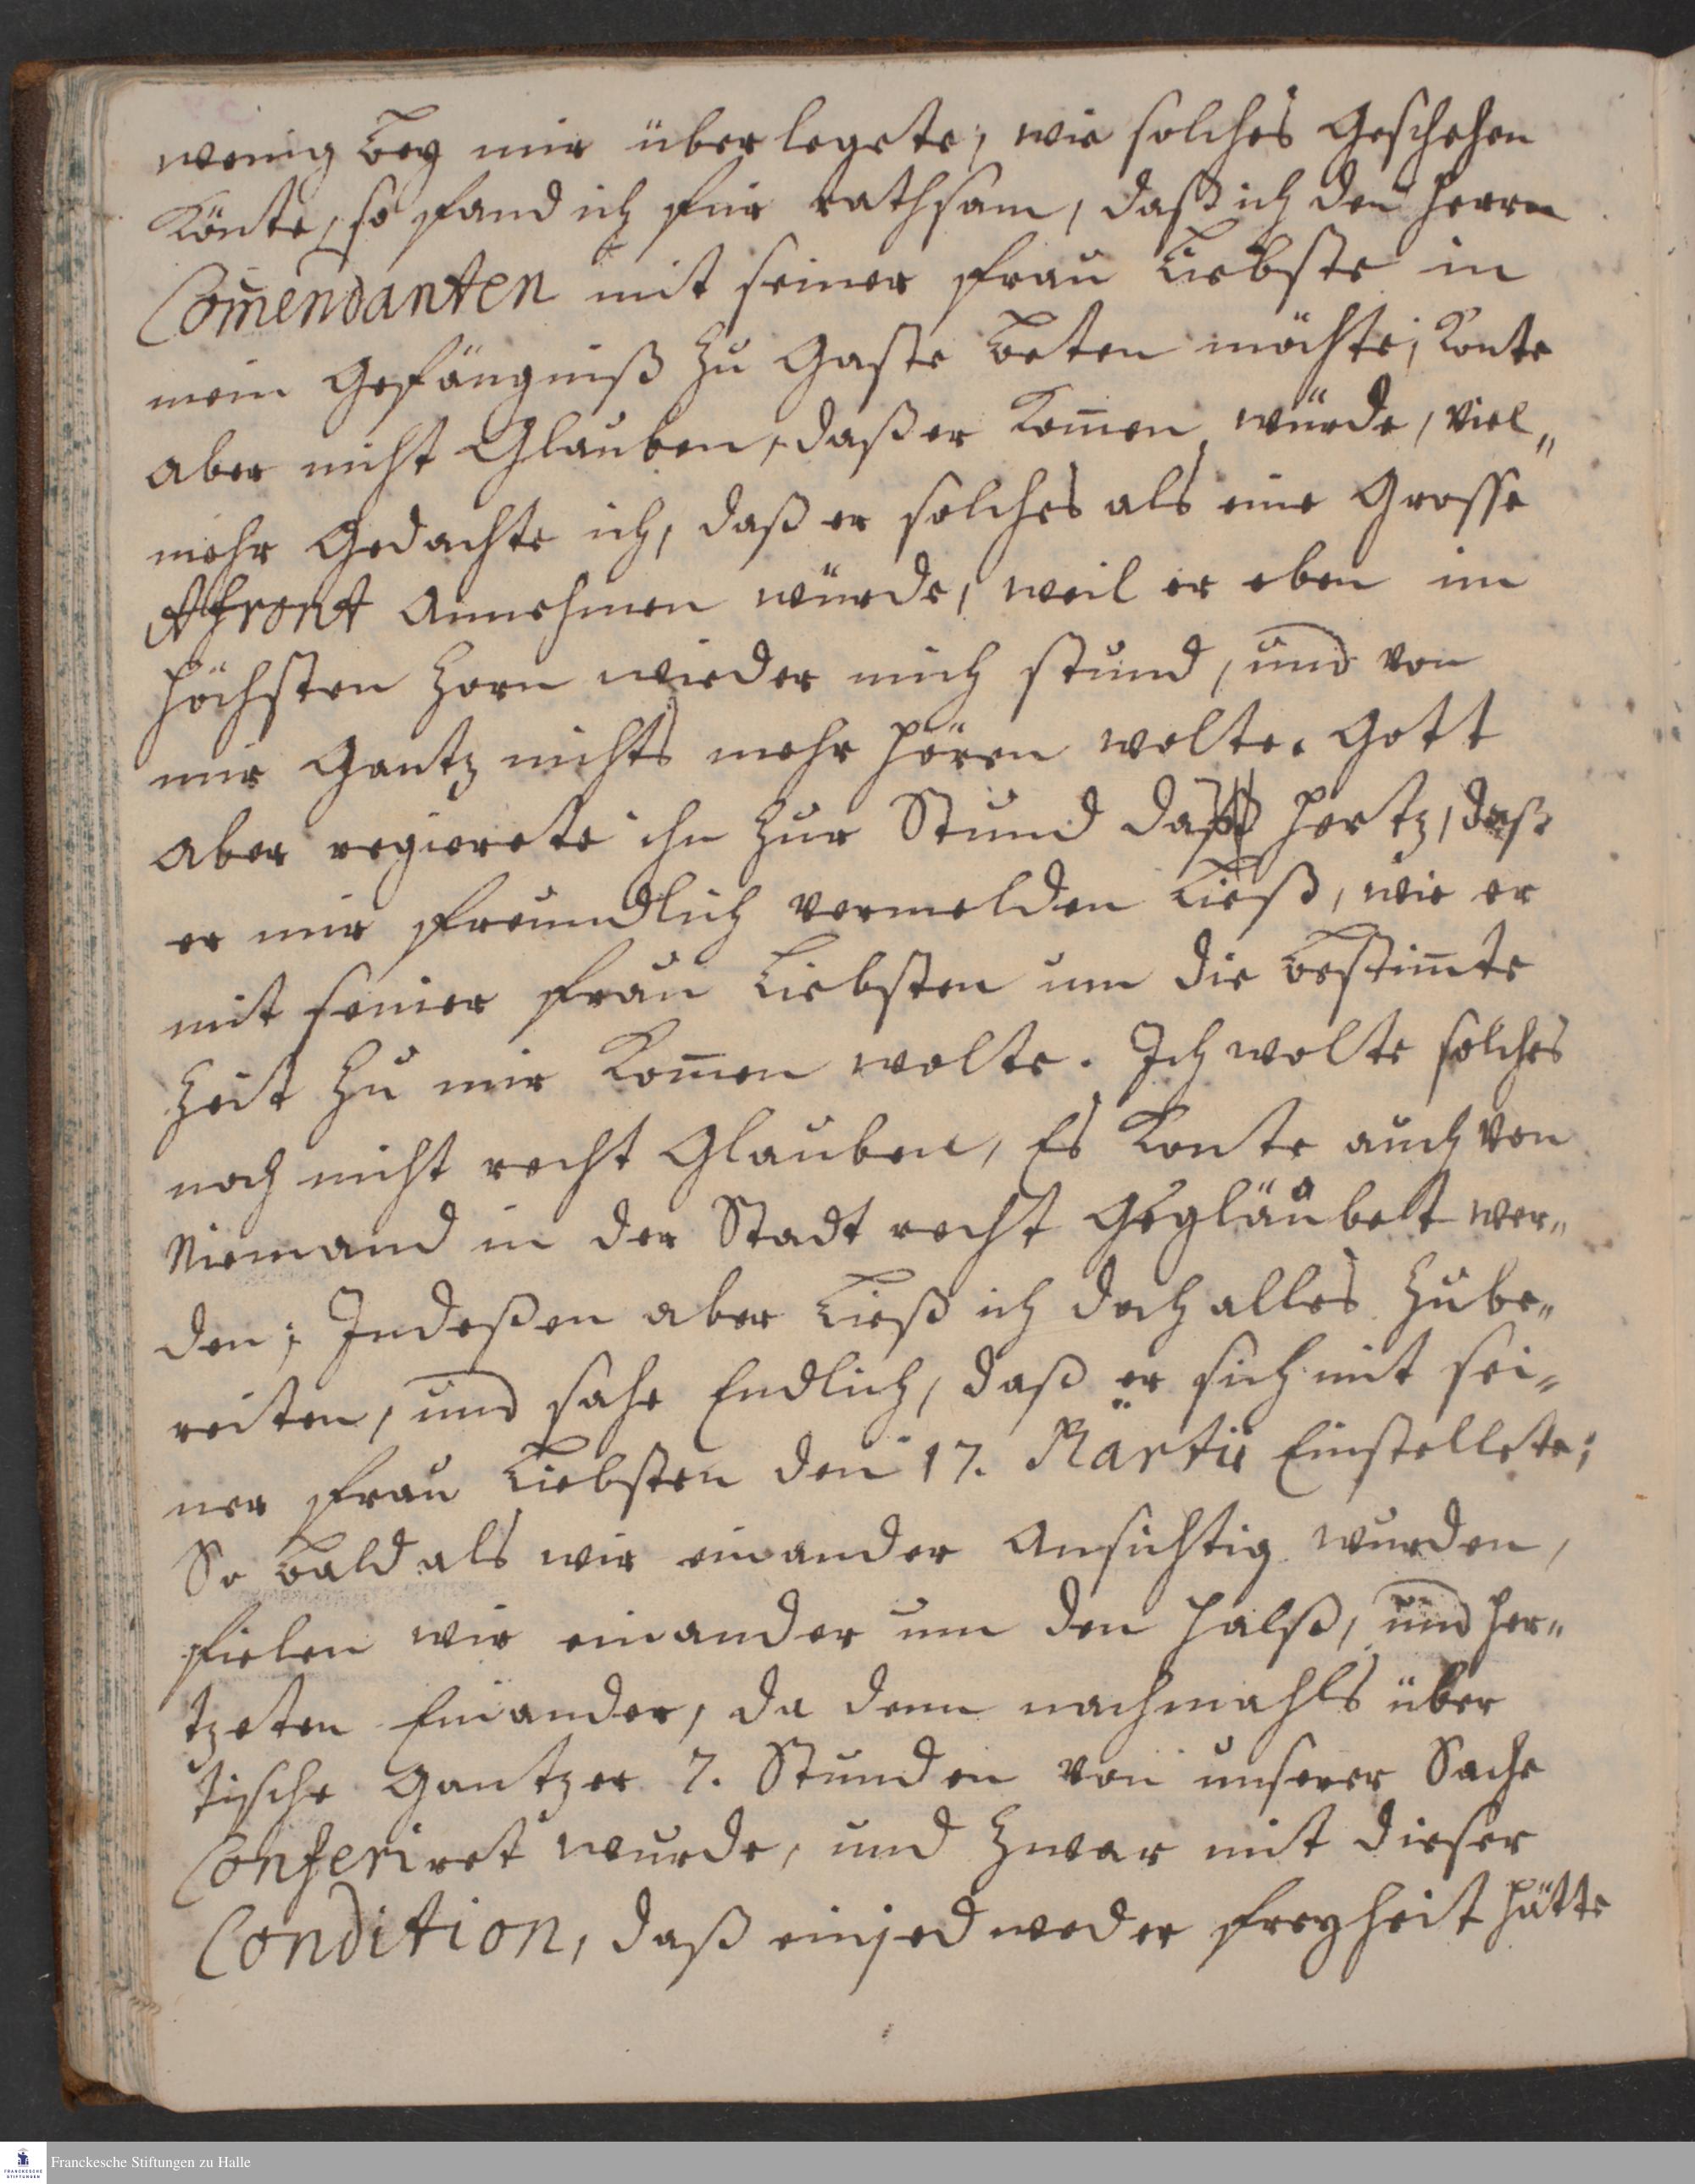 wenig bey mir überlegete, wie solches Geschehen
Könte, so fand ich für rathsam, daß ich den Herrn
Com̄endanten mit seiner Frau Liebste in
mein Gefängniß zu Gaste beten möchte, Konte
aber nicht Glauben, daß er Kom̄en würde, viel„
mehr Gedachte ich, daß er solches als eine Grosse
Affront Annehmen würde, weil er eben im
höchsten Zorn wieder mich stund, und von
mir Gantz nichts mehr hören wolte. Gott
aber regierete ihn zur Stund das Hertz, daß
er mir freundlich vermelden Ließ, wie er
mit seiner Frau Liebsten um die bestim̄te
Zeit zu mir Kom̄en wolte. Ich wolte solches
noch nicht recht Glauben, Es Konte auch von
Niemand in der Stadt recht Gegläubet wer„
den; Indeßen aber Ließ ich doch alles zube„
reiten, und sahe Endlich, daß er sich mit sei„
ner Frau Liebsten den 17. Martii Einstellete;
So bald als wir einander Ansichtig wurden,
fielen wir einander um den Halß, und her„
tzeten Einander, da denn nachmahls über
Tische Gantzer 7. Stunden von unserer Sache
Conferiret wurde, und zwar mit dieser
Condition, daß einjedweder Freyheit hätte
Franckesche Stiftungen zu Halle
FRANCKESCHE
STIFTUNGEN